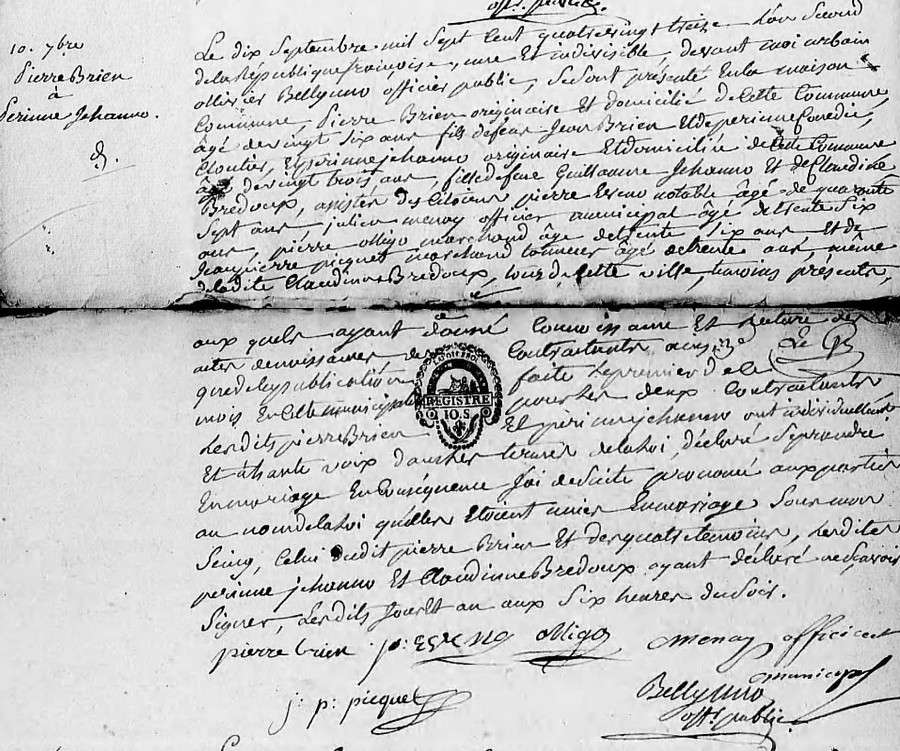 offr. public.
10. 7bre
Pierre Brien
à
Perinne Jehanno.
Le dix Septembre mil Sept Cent quatre vingt treize L'an Second
de la République françoise, une Et indivisible, devant moi urbain
ollivier Bellyuno officier public, Se Sont présenté En la maison
Commune, Pierre Brien originaire Et domicilié de Cette Commune,
âgé de vingt Six ans fils de feu Jean Brien Et de perinne
Cloutier, Et perinne jehanno originaire Et domiciliée de Cette Commune
âgé de vingt trois ans, fille de feue Guillaume Jehanno Et de Claudine
Bredoux, assistés des Citoiens pierre Esveno notable âgé de quarante
Sept ans, julien menay officier municipal âgé de trente Six
ans, pierre olligo marchand âgé de trente Six ans Et de
Jean pierre picquet marchand tanneur âgé de trente ans, même
de la dite Claudinne Bredoux, tous de Cette ville, temoins présents,
aux quels ayant donné Connoissance Et lecture des
actes de naissances, des Contractants ainsi
que de la publication faite le premier de Ce
mois En Cette municipalité pour les deux Contractants
REGISTRE
10. S.
Les dits pierre Brien Et perinne jehanno ont individuellement
Et à haute voix dans les termes de la Loi, déclaré Se prendre
En mariage En Conséquence J'ai de Suite prononcé aux parties
au nom de la Loi qu'elles Etoient unies En mariage Sous mon
Seing, Celui dudit pierre Brien Et des quatre temoins, Les dites
perinne jehanno Et Claudinne Bredoux ayant déclaré ne Scavoir
Signer, Les dits Jour Et an aux Six heures du Soir.
pierre brien p: Esveno Olligo Menay officier
municipal
Bellyuno
offr. public
j: p: picquet